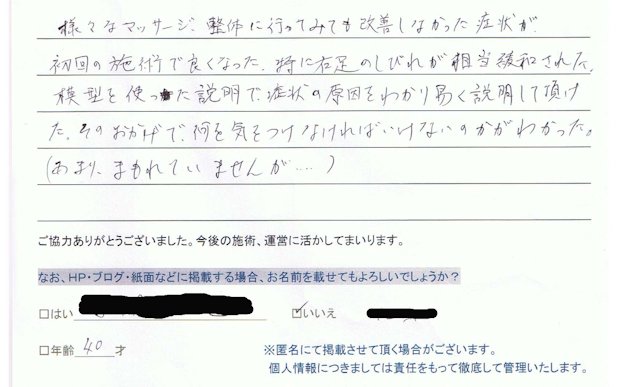 様々なマッサージ、整体に行ってみても改善しなかった症状が、
初回の施術で良くなった。特に右足のしびれが相当緩和された。
模型を使った説明で、症状の原因をわかり易く説明して頂け
た。そのおかげで、何を気をつけなければいけないのかがわかった。
(あまり、まもれていませんが....)
ご協力ありがとうございました。今後の施術、運営に活かしてまいります。
なお、HP・ブログ・紙面などに掲載する場合、お名前を載せてもよろしいでしょうか?
□はい ☑いいえ
□年齢 40 才 ※匿名にて掲載させて頂く場合がございます。
個人情報につきましては責任をもって徹底して管理いたします。